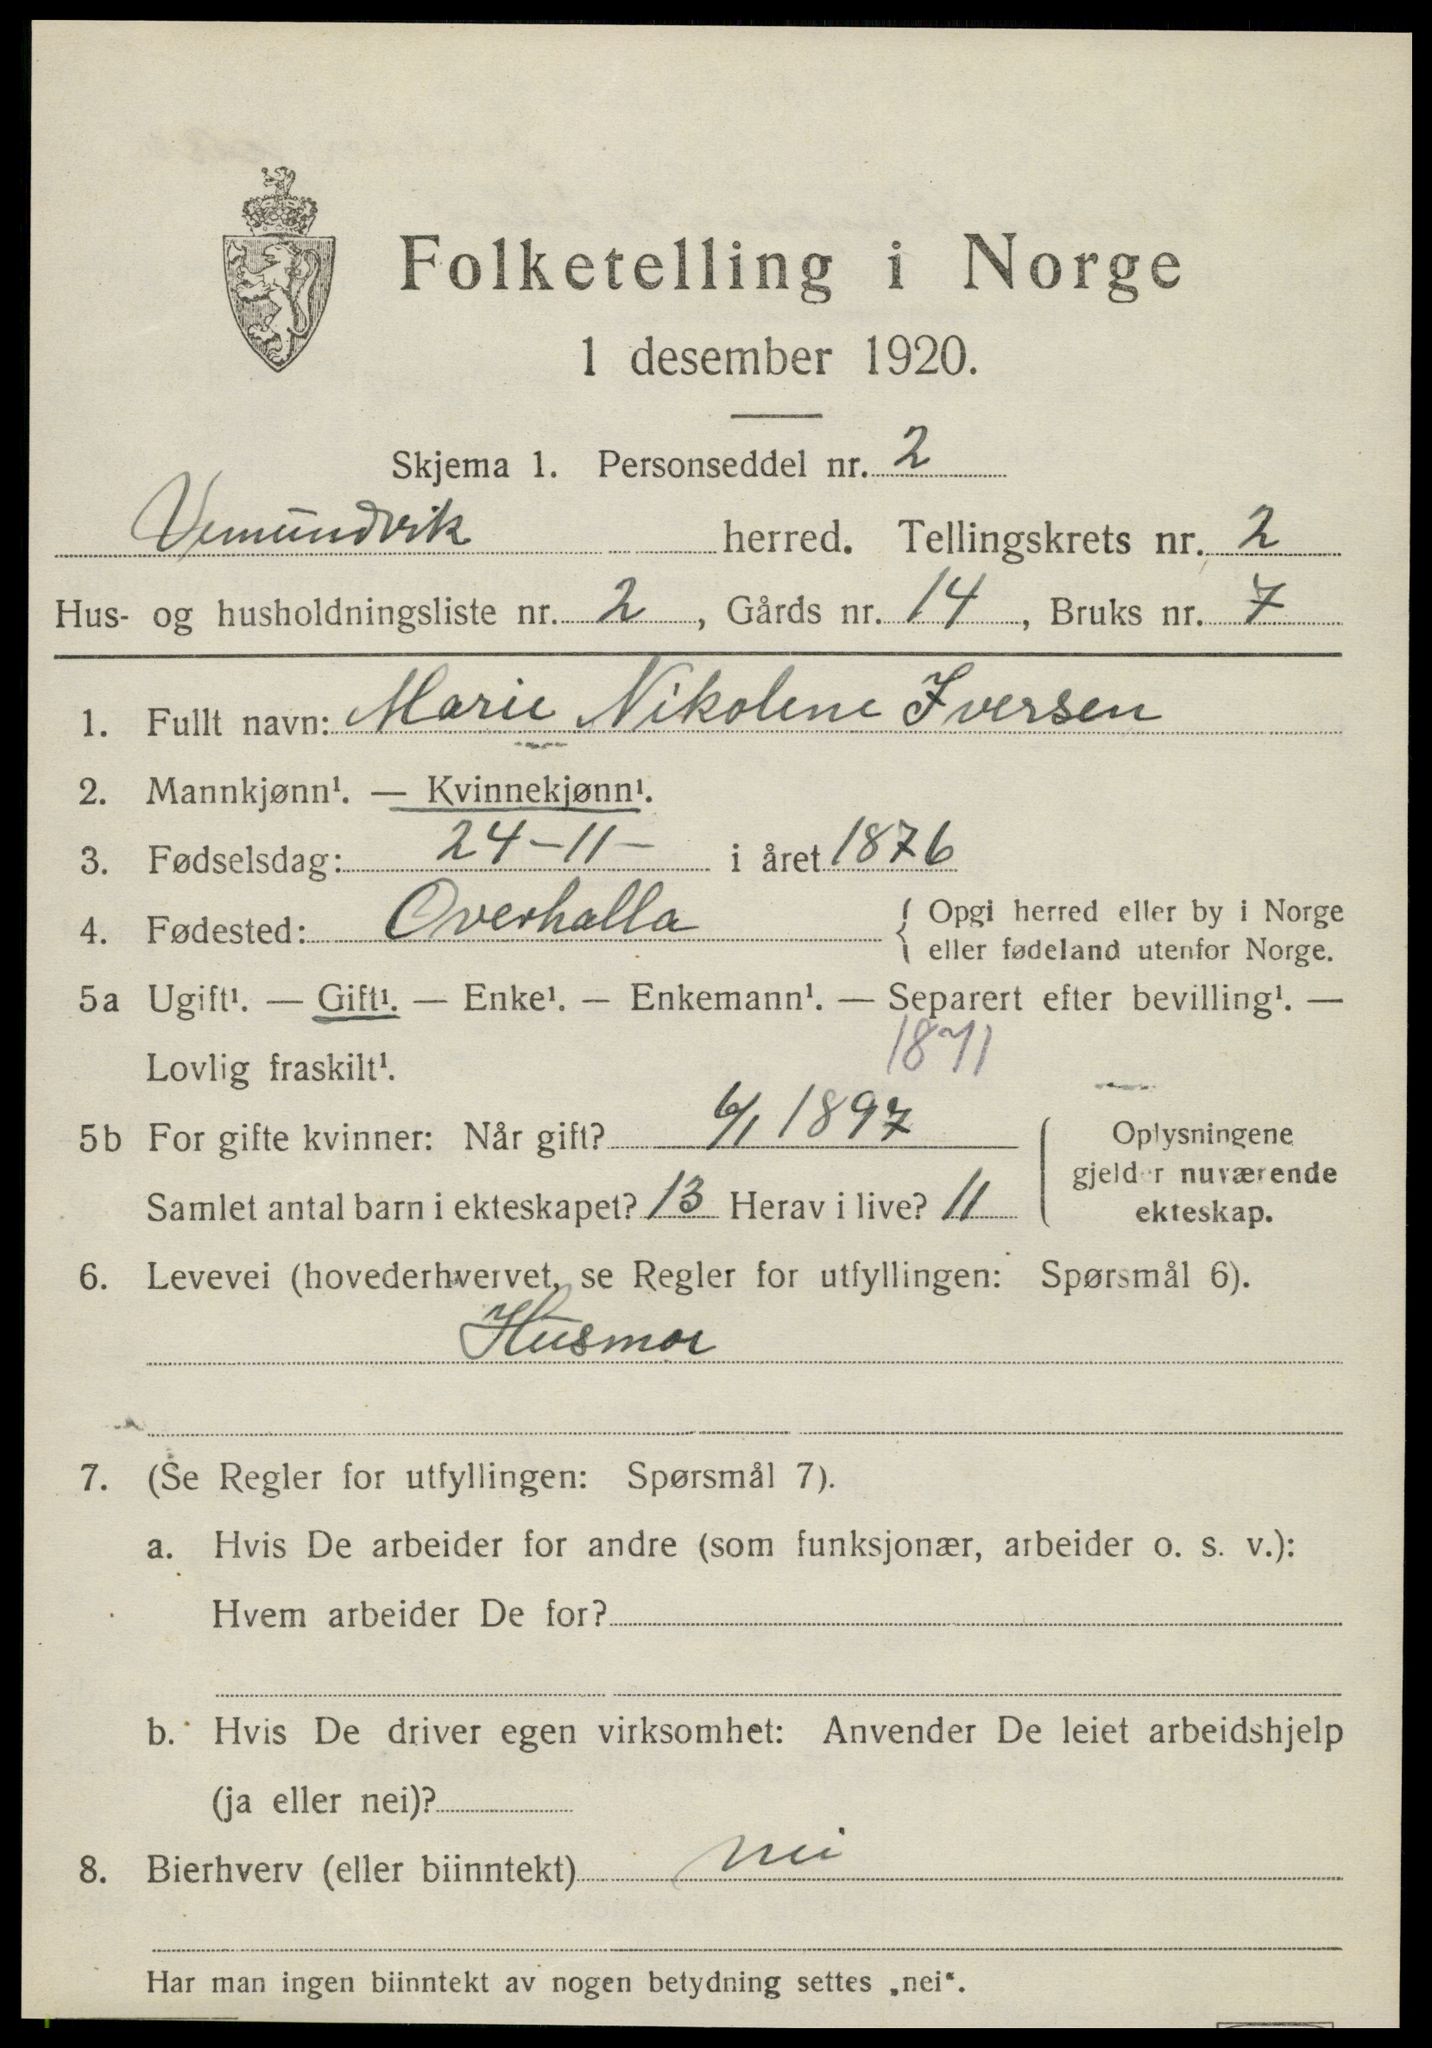 Folketelling i Norge
1 desember 1920.
Skjema 1. Personseddel nr. 2
Vemundvik herred. Tellingskrets nr. 2
Hus- og husholdningsliste nr. 2, Gårds nr. 14, Bruks nr. 7
1. Fullt navn: Marie Nikolene Iversen
2. Mannkjønn¹. — Kvinnekjønn¹.
3. Fødselsdag: 24-11- i året 1876
4. Fødested: Overhalla { Opgi herred eller by i Norge
eller fødeland utenfor Norge.
5a Ugift¹. — Gift¹. — Enke¹. — Enkemann¹. — Separert efter bevilling¹. —
Lovlig fraskilt¹.
5b For gifte kvinner: Når gift? 6/1 1897
Samlet antal barn i ekteskapet? 13 Herav i live? 11
Oplysningene
gjelder nuværende
ekteskap.
6. Levevei (hovederhvervet, se Regler for utfyllingen: Spørsmål 6).
Husmor
7. (Se Regler for utfyllingen: Spørsmål 7).
a. Hvis De arbeider for andre (som funksjonær, arbeider o. s. v.):
Hvem arbeider De for?
b. Hvis De driver egen virksomhet: Anvender De leiet arbeidshjelp
(ja eller nei)?
8. Bierhverv (eller biinntekt) nei
Har man ingen biinntekt av nogen betydning settes „nei“.